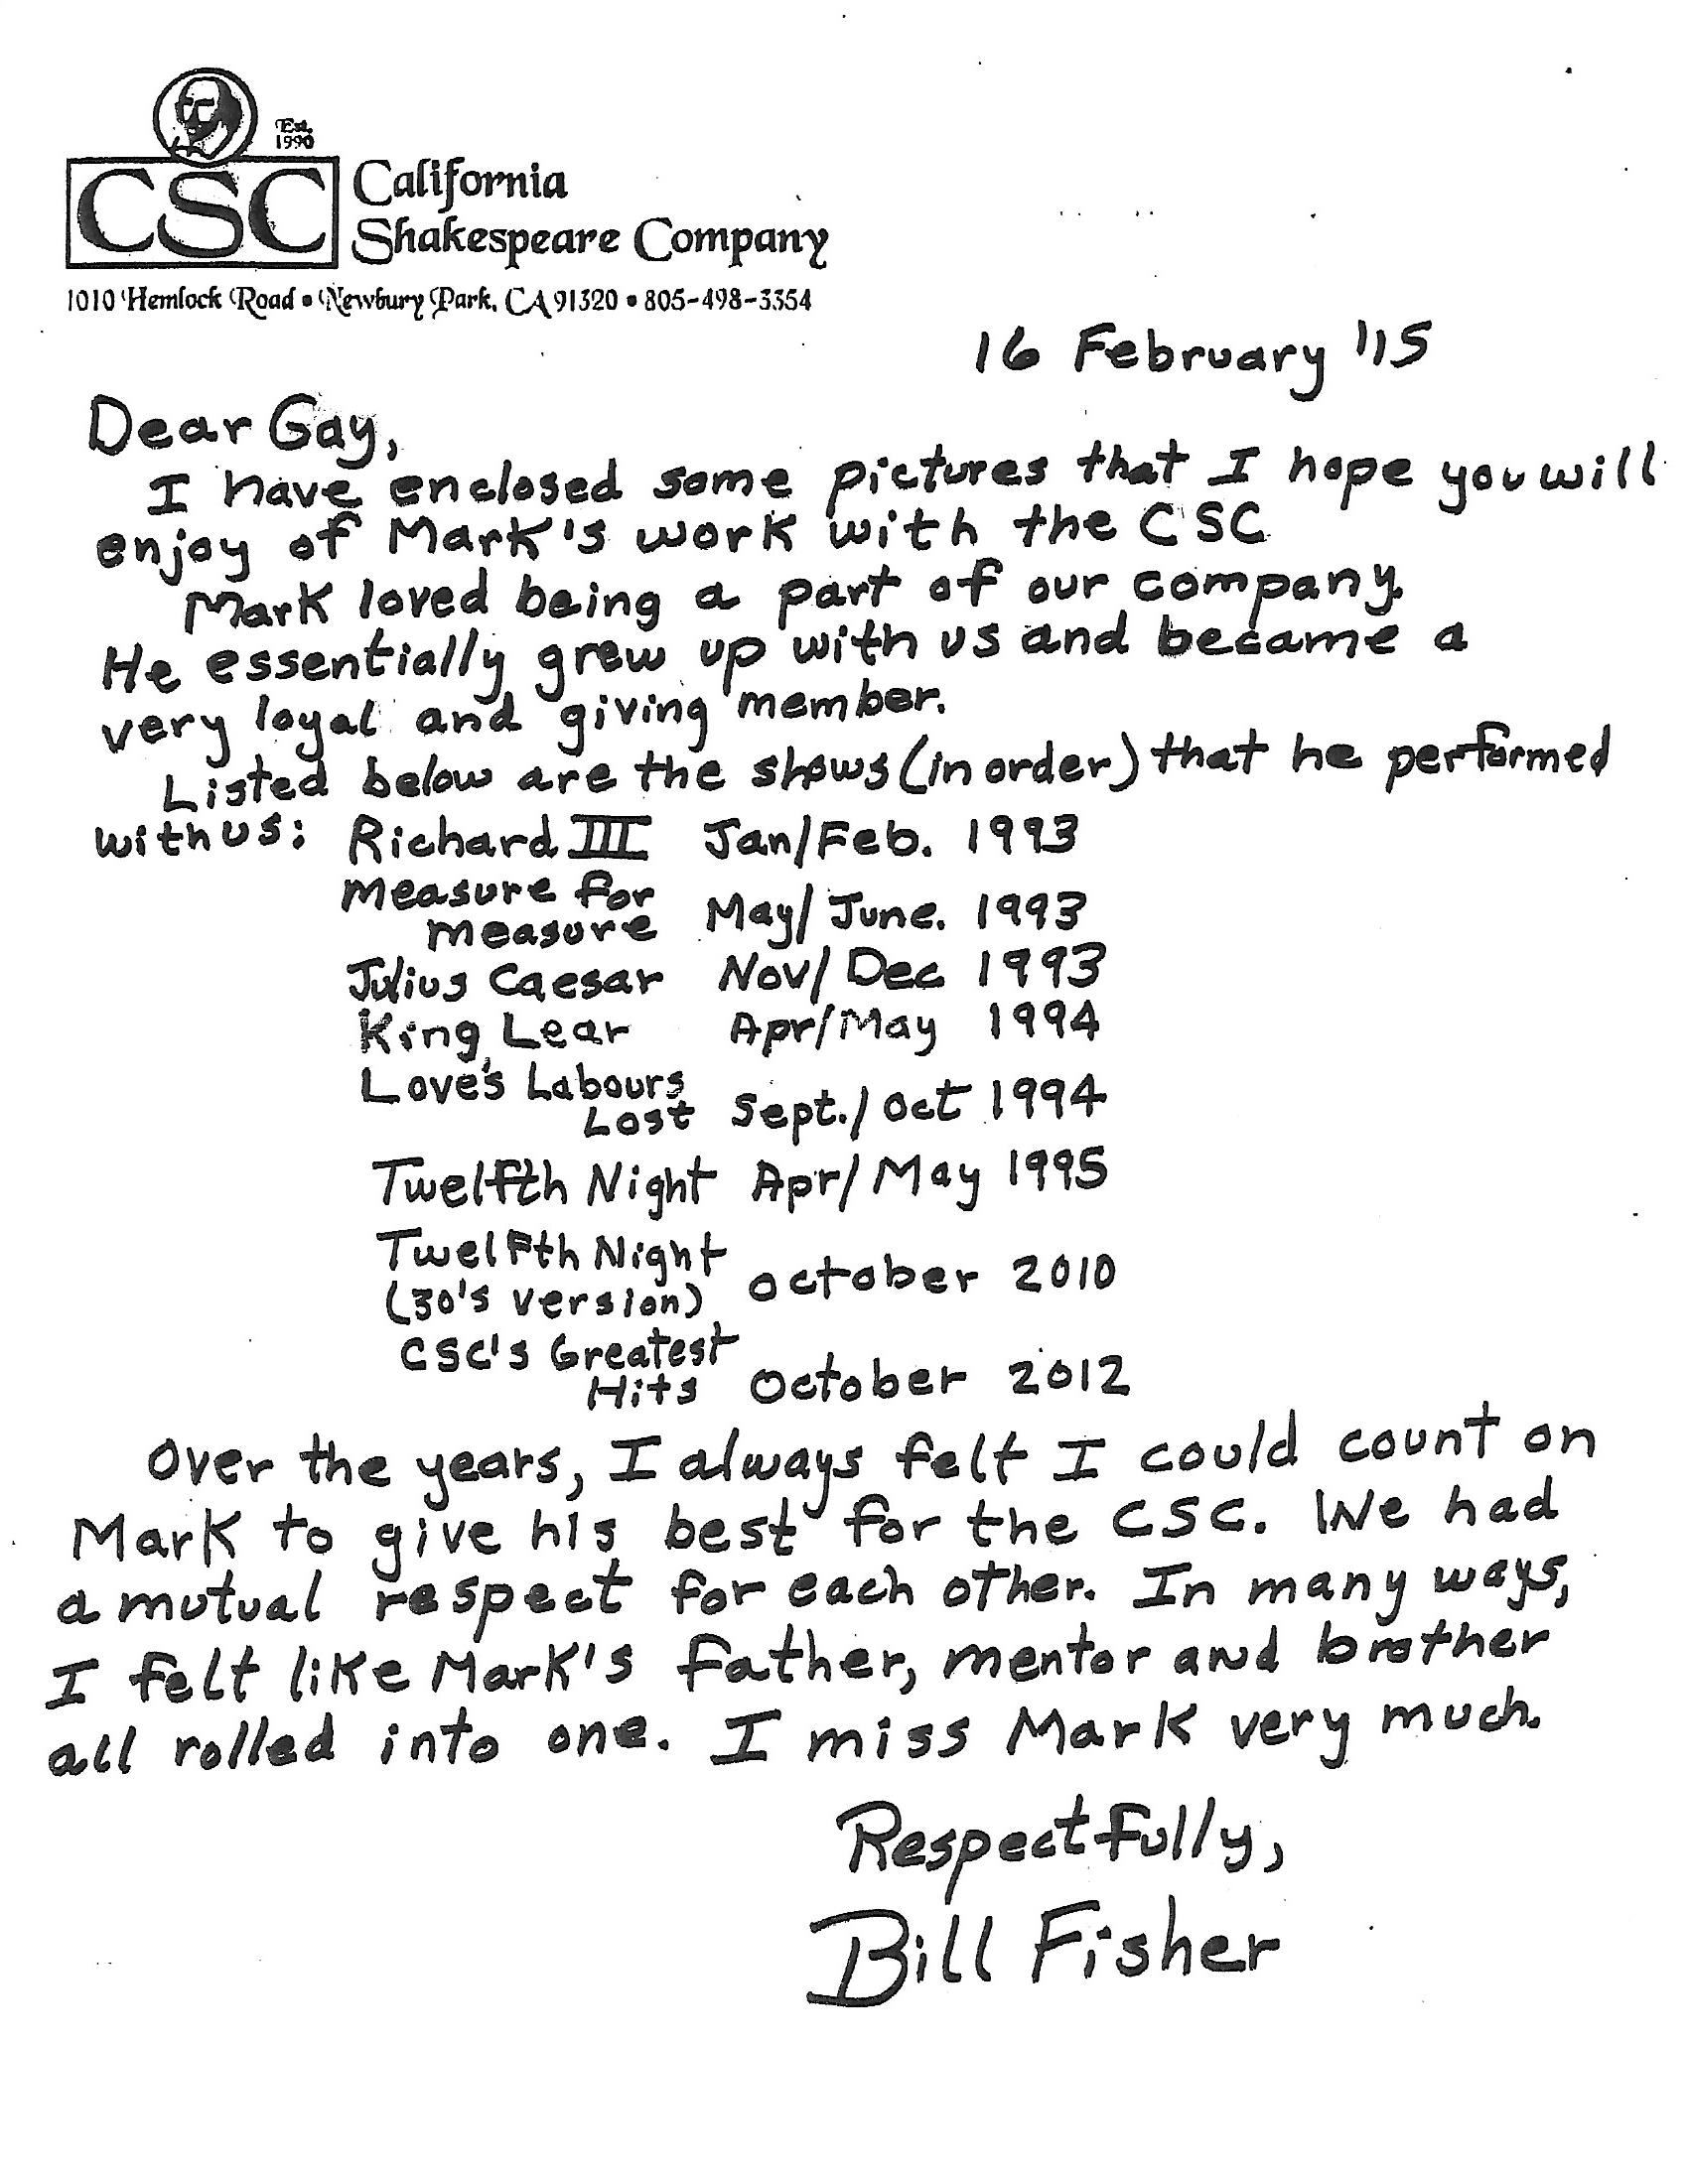 Est.
1990
CSC California
Shakespeare Company
1010 Hemlock Road • Newbury Park, CA 91320 • 805-498-3354
16 February '15
Dear Gay,
I have enclosed some pictures that I hope you will
enjoy of Mark's work with the CSC
Mark loved being a part of our company.
He essentially grew up with us and became a
very loyal and giving member.
Listed below are the shows (in order) that he performed
with us: Richard III Jan/Feb. 1993
Measure for
Measure May/June. 1993
Julius Caesar Nov/Dec 1993
King Lear Apr/May 1994
Love's Labours
Lost Sept./Oct 1994
Twelfth Night Apr/May 1995
Twelfth Night
(30's version) October 2010
CSC's Greatest
Hits October 2012
Over the years, I always felt I could count on
Mark to give his best for the CSC. We had
a mutual respect for each other. In many ways,
I felt like Mark's father, mentor and brother
all rolled into one. I miss Mark very much.
Respectfully,
Bill Fisher